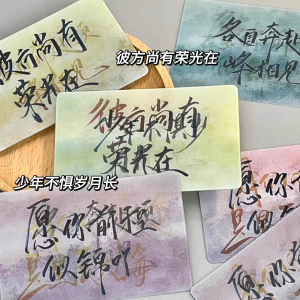 彼方尚有
荣光在
彼方尚有荣光在
各自奔赴
峰相见
彼方尚有
荣光在
少年不惧岁月长
愿你前程
似锦
愿你